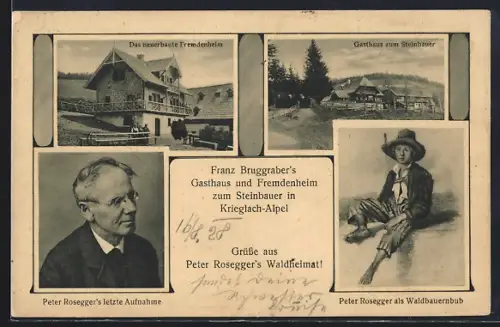 Das neuerbaute Fremdenheim
Gasthaus zum Steinbauer
Franz Bruggraber's
Gasthaus und Fremdenheim
zum Steinbauer in
Krieglach-Alpel
Grüße aus
Peter Rosegger's Waldheimat!
Peter Rosegger's letzte Aufnahme
Peter Rosegger als Waldbauernbub